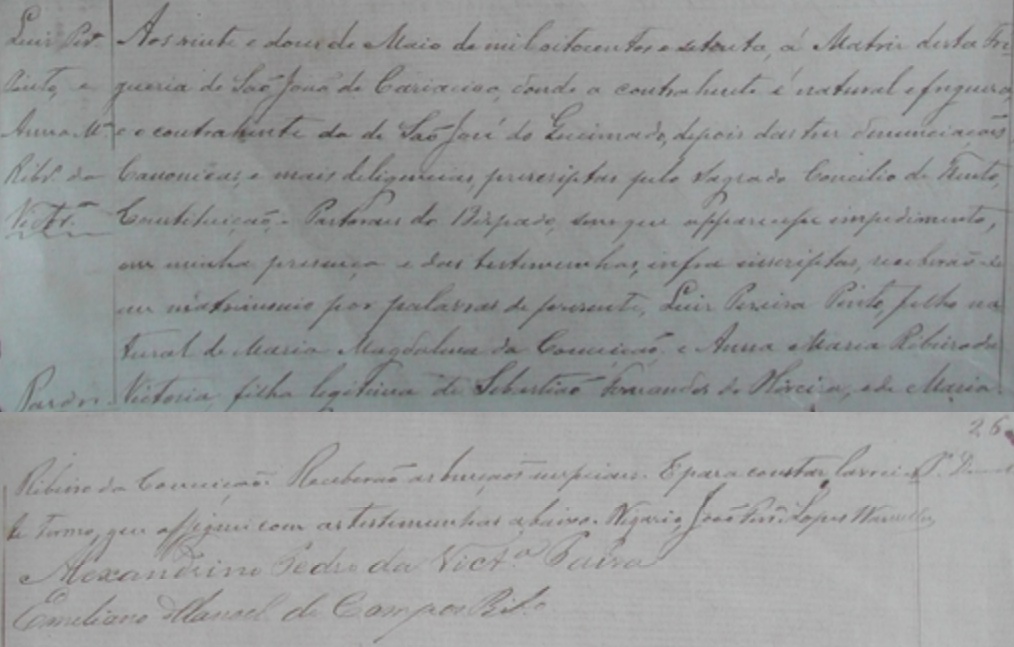 Luiz Per.ª Aos vinte e dous de Maio de mil oitocentos e setenta, á Matriz desta Fre-
Pinto, e gueria de São João de Cariacica, donde a contrahente é natural e fregueza,
Anna M.ª e o contrahente da de São José do Queimado, depois das tres denunciaçoes
Ribr.º da Canonicas, e mais deligencias, prescriptas pelo Sagrado Concilio de Trento,
Victr.ª Constituição e Pastoraes do Bispado, sem que apparecesse impedimento,
em minha presença e das testemunhas, infra inscriptas, receberão-se
em matrimonio por palavras de presente, Luiz Pereira Pinto, filho na
tural de Maria Magdalena da Conceicão e Anna Maria Ribeiro da
Pardos Victoria, filha legitima de Sebastião Fernandes de Oliveira, e de Maria
26
Ribeiro da Conceicão. Receberão as bençoes nupciaes. E para constar lavrei es-
te termo, que assignei com as testemunhas abaixo. Vigario João Lopes
Alexandrino Pedro da Vict.ª Paiva
Emiliano Manoel de Campos